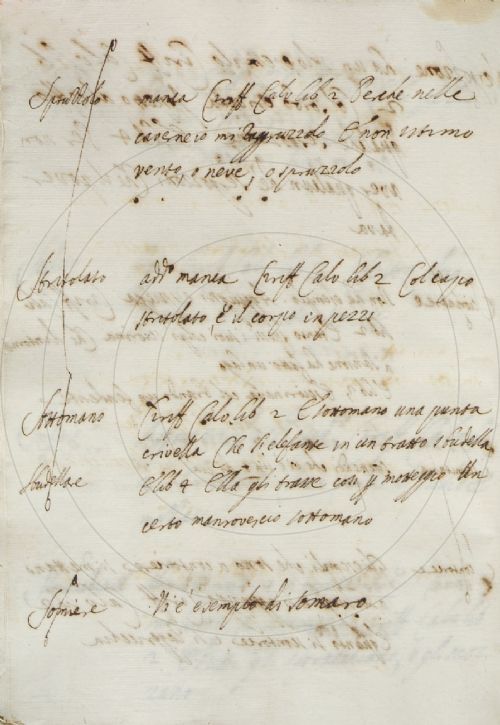 Spruzzolo manca Ciriff. Calv. lib 2 Perche nelle
caverne io mi
non istimo
vento, o neve, o spruzzolo
Stritolato add. manca Ciriff. Calv. lib 2 Col capo
stritolato, e il corpo in pezzi
Sottomano Ciriff. Calv. lib. 2 E sottomano una punta
crivella Che Liel in un tratto sbudella
Sbudellare E lib 4 Ella gli trasse così p
Un
certo manrovescio sottomano
Somiere Vi è esempio di somaro